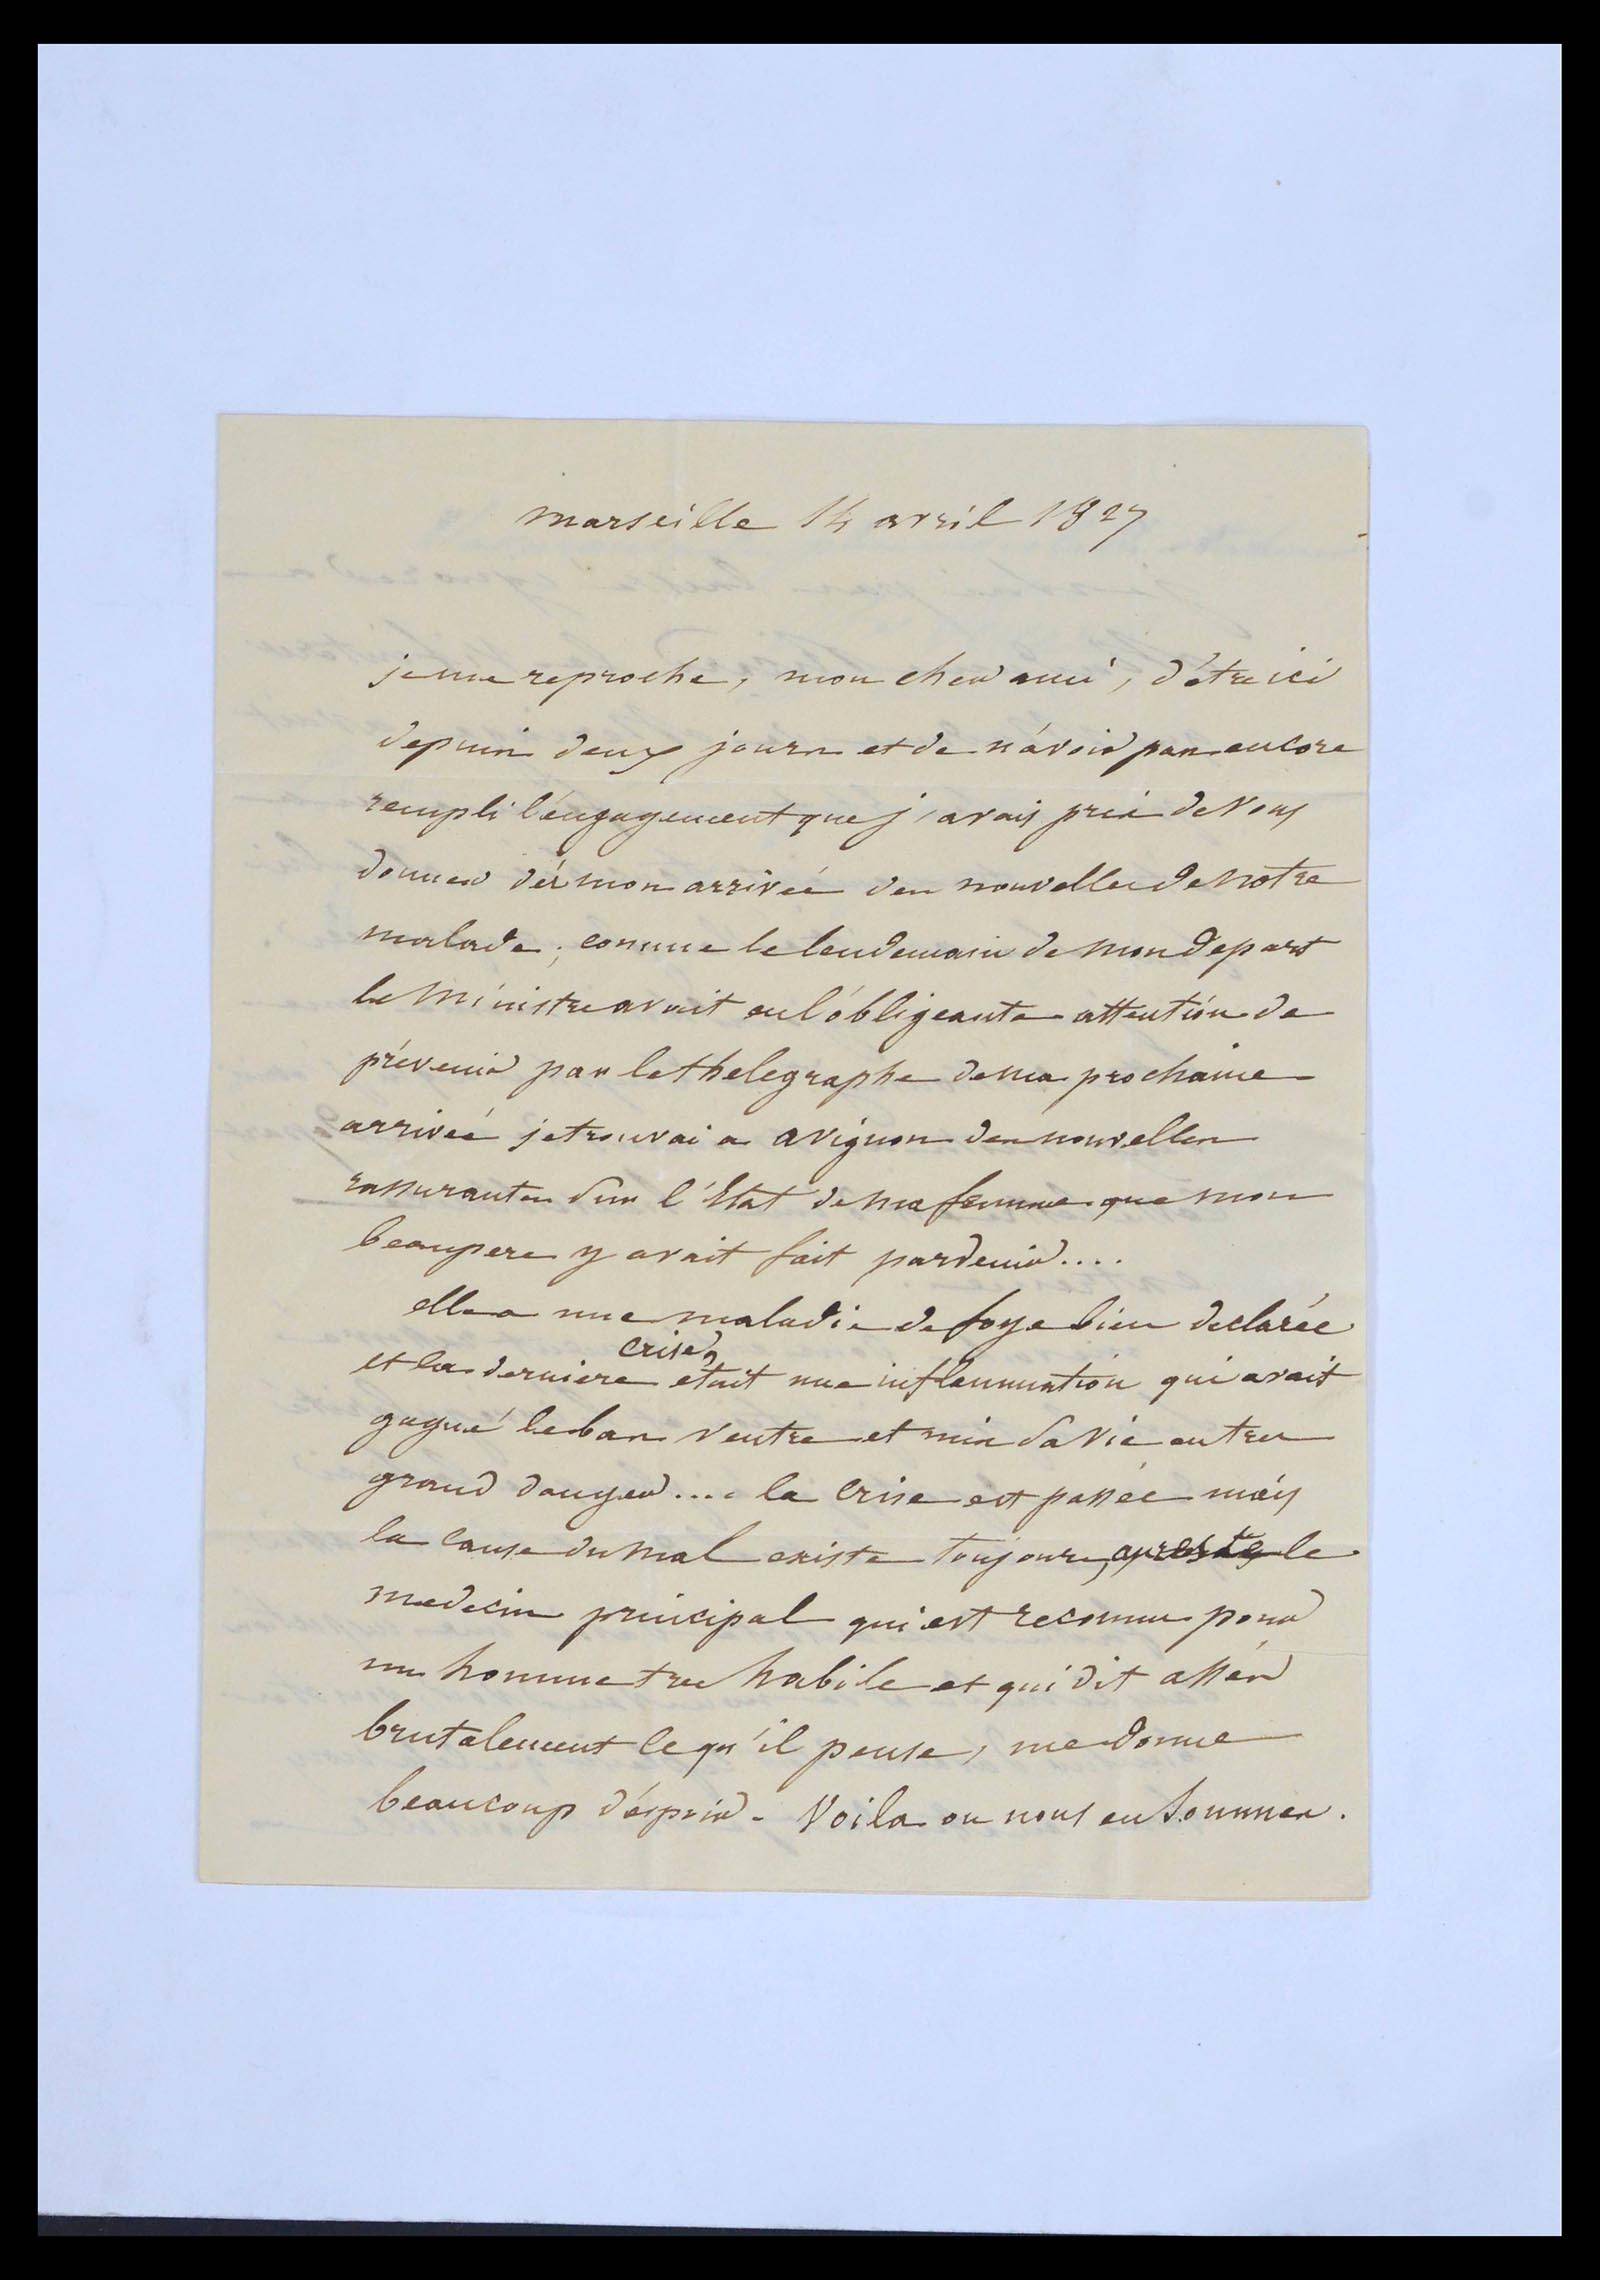 Marseille 14 avril 1827
je me reproche, mon cher ami, d'étre ici
depuis deux jours et de n'ávoir pas encore
rempli l'éngagement que j'avais pris de vous
donner dés mon arrivée des nouvelles de notre
malade; comme le lendemain de mon depart
le Ministre avait eu l'óbligeante attention de
prévenir par le thelegraphe de ma prochaine
arrivée je trouvai a avignon des nouvelles
rassurantes sur l'état de ma femme que mon
beaupere y avait fait parvenir....
elle a une maladie de foye bien declarée
et la derniere crise, etait une inflammation qui avait
gagné le bas ventre et mis sa vie en tres
grand danger.... la crise est passée mais
la cause du mal existe toujours, le
medecin principal qui est reconnu pour
un homme tres habile et qui dit assés
brutalement ce qu'il pense, me donne
beaucoup d'éspoir. Voila ou nous en sommes.